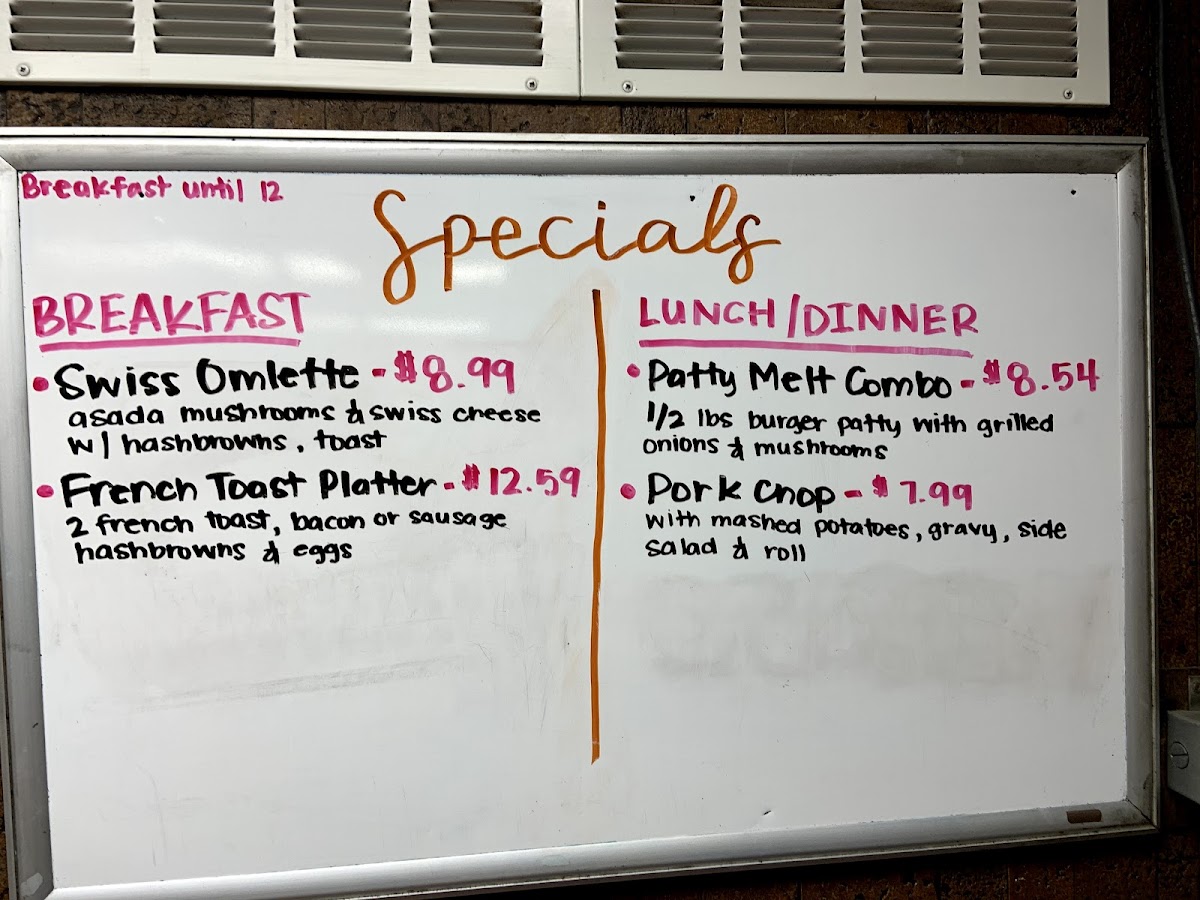 Breakfast until 12
Specials
BREAKFAST
• Swiss Omlette - $8.99
asada mushrooms & swiss cheese
w/ hashbrowns, toast
• French Toast Platter - $12.59
2 french toast, bacon or sausage
hashbrowns & eggs
LUNCH/DINNER
• Patty Melt Combo - $8.54
1/2 lbs burger patty with grilled
onions & mushrooms
• Pork Chop - $7.99
with mashed potatoes, gravy, side
salad & roll